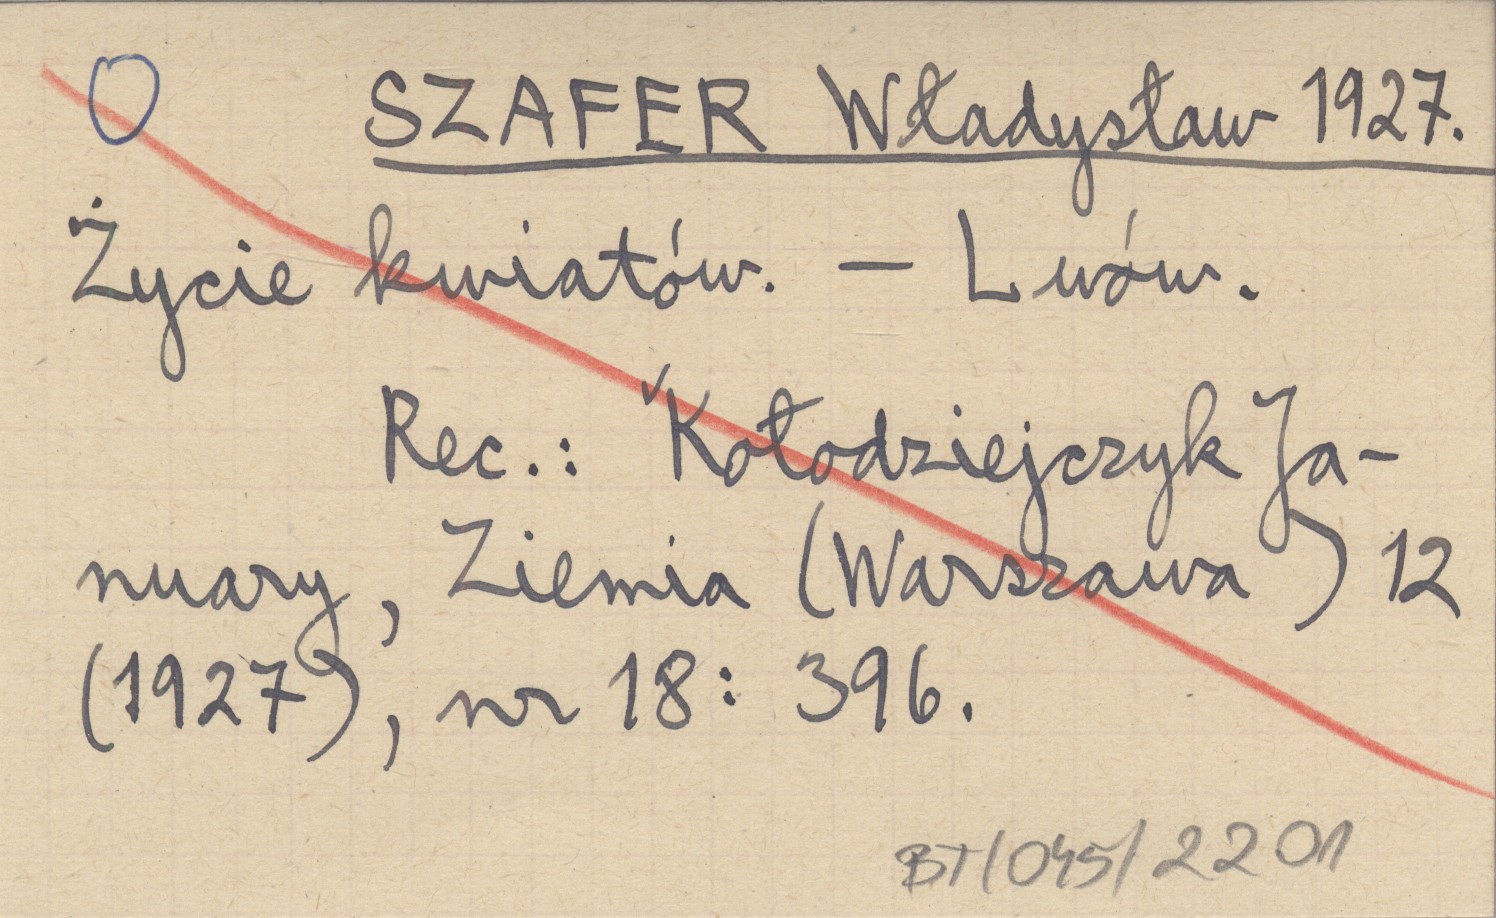 SZAFER Władysław 1927.
Życie kwiatów. — Lwów.
Rec.: Kołodziejczyk Ja-
nuary, Ziemia (Warszawa) 12
(1927), nr 18: 396.
BT/045/2201